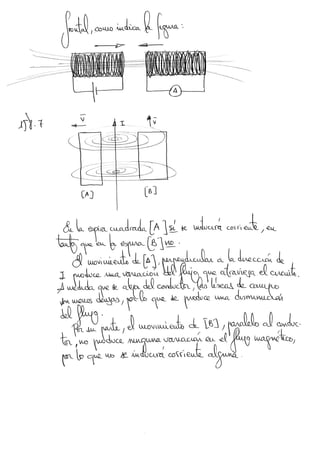 frontal, como indica la figura:
A
17 8.7
v I v
[A] [B]
En la espira cuadrada [A] sí se inducirá corriente, en
tanto que en la espira [B] no.
El movimiento de [A], perpendicular a la dirección de
I produce una variación del flujo que atraviesa el circuito.
A medida que se aleja del conductor, las líneas de campo
son menos densas, por lo que se produce una disminución
del flujo.
Por su parte, el movimiento de [B], paralelo al conduc-
tor, no produce ninguna variación en el flujo magnético,
por lo que no se inducirá corriente alguna.